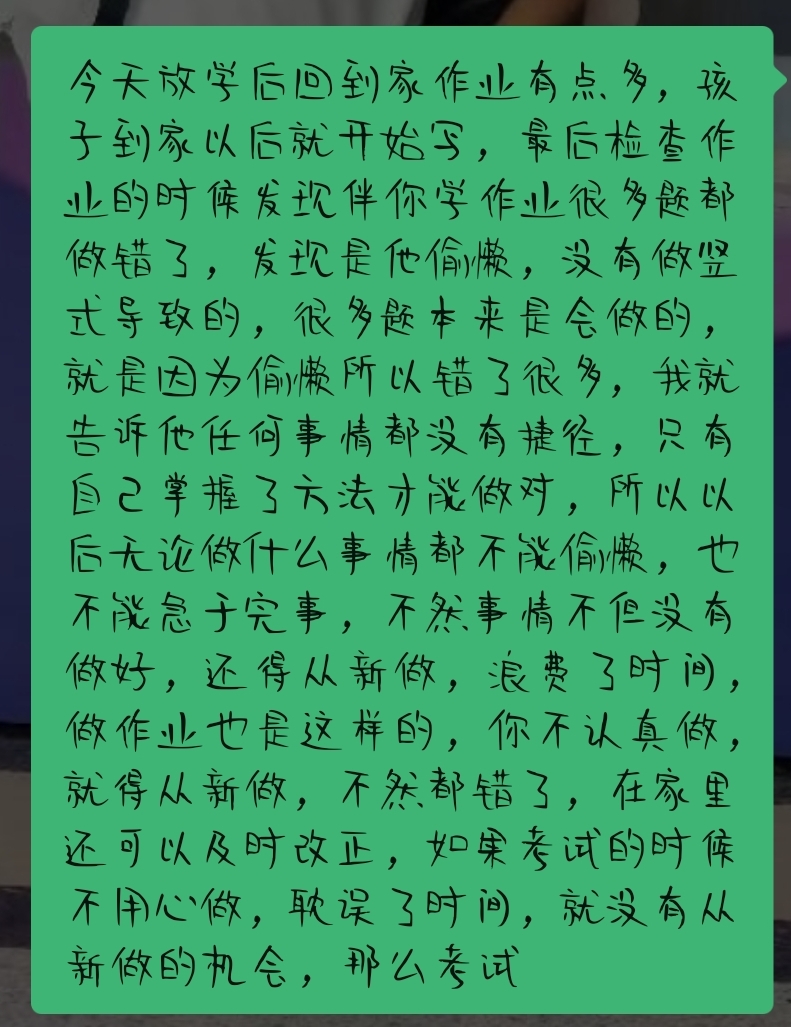 今天放学后回到家作业有点多，孩
子到家以后就开始写，最后检查作
业的时候发现伴你学作业很多题都
做错了，发现是他偷懒，没有做竖
式导致的，很多题本来是会做的，
就是因为偷懒所以错了很多，我就
告诉他任何事情都没有捷径，只有
自己掌握了方法才能做对，所以以
后无论做什么事情都不能偷懒，也
不能急于完事，不然事情不但没有
做好，还得从新做，浪费了时间，
做作业也是这样的，你不认真做，
就得从新做，不然都错了，在家里
还可以及时改正，如果考试的时候
不用心做，耽误了时间，就没有从
新做的机会，那么考试